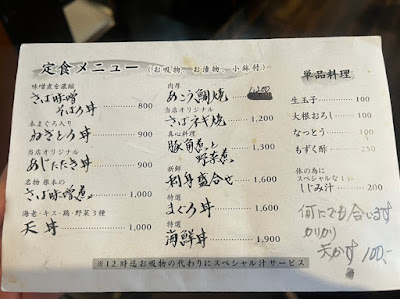 定食メニュー (お吸物、お漬物、小鉢付)
味噌煮を濃縮
さば味噌
そぼろ丼 800
本まぐろ入り
ねぎとろ丼 900
当店オリジナル
あじたたき丼 900
名物 根本の
さば味噌煮 1,000
海老・キス・鶏・野菜3種
天丼 1,000
肉厚
あこう鯛焼
当店オリジナル
さばネギ焼 1,200
真心料理
豚角煮と
野菜煮 1,300
新鮮
刺身盛合せ 1,600
特選
まぐろ丼 1,600
特選
海鮮丼 1,900
単品料理
生玉子 100
大根おろし 100
なっとう 100
もずく酢 250
体の為に
スペシャルな
しじみ汁 200
何にでも合います
カリカリ
天かす 100.-
※12時迄お吸物の代わりにスペシャル汁サービス